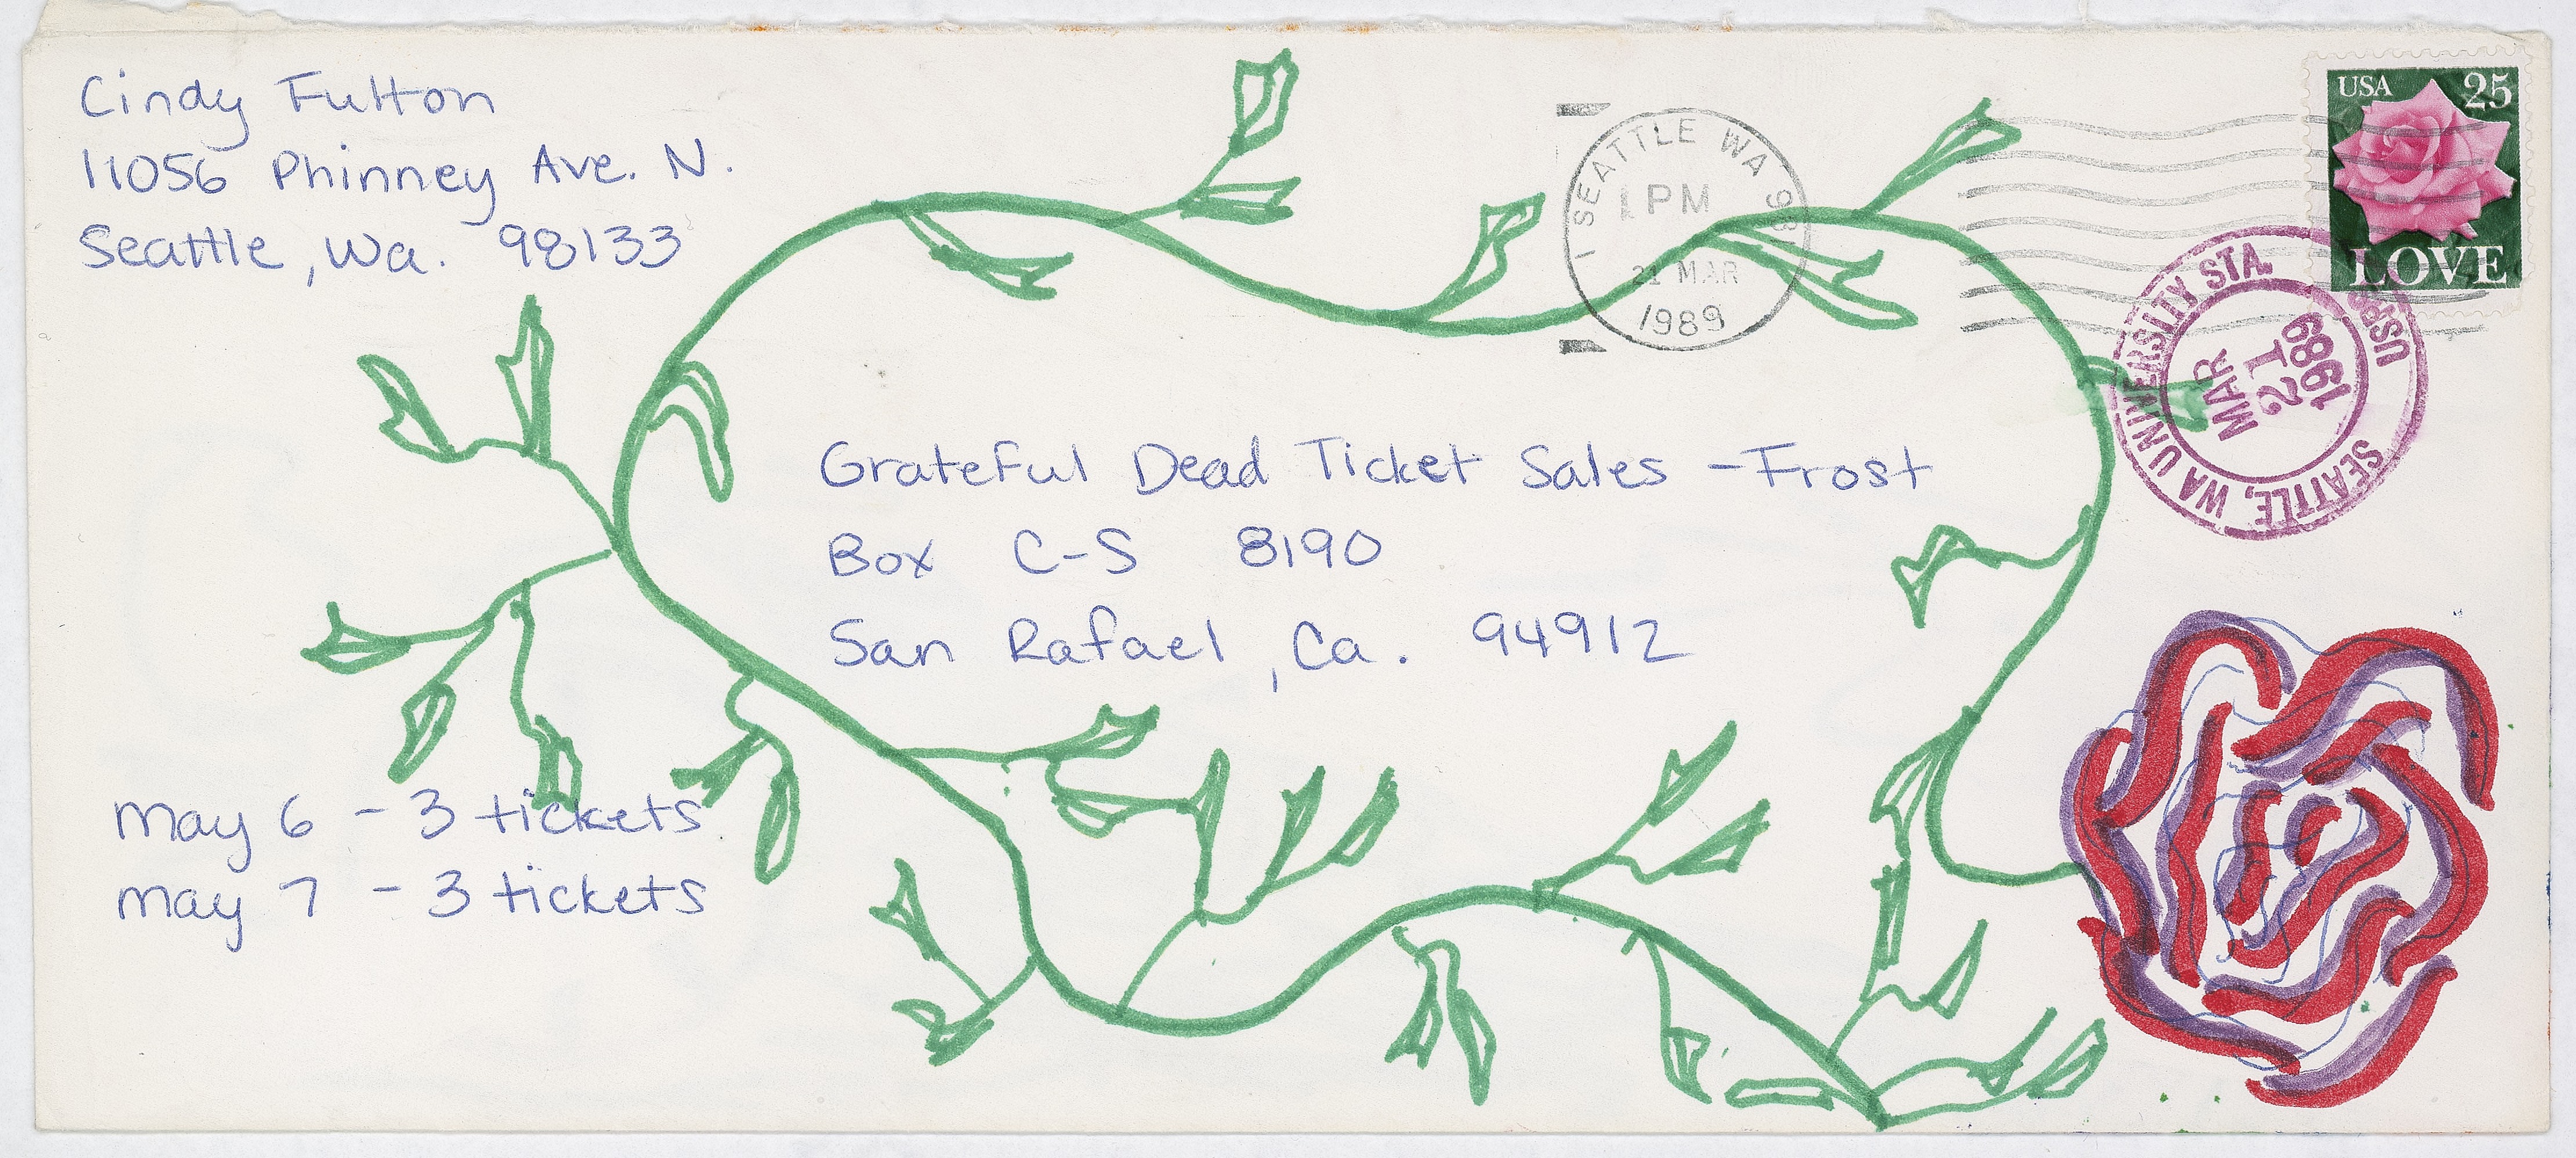 Cindy Fulton
11056 Phinney Ave. N.
Seattle, Wa. 98133
SEATTLE WA 981
PM
21 MAR
1989
USA 25
LOVE
UNIVERSITY STA.
SEATTLE, WA
USPS
MAR
21
1989
Grateful Dead Ticket Sales - Frost
Box C-S 8190
San Rafael, Ca. 94912
May 6 - 3 tickets
May 7 - 3 tickets